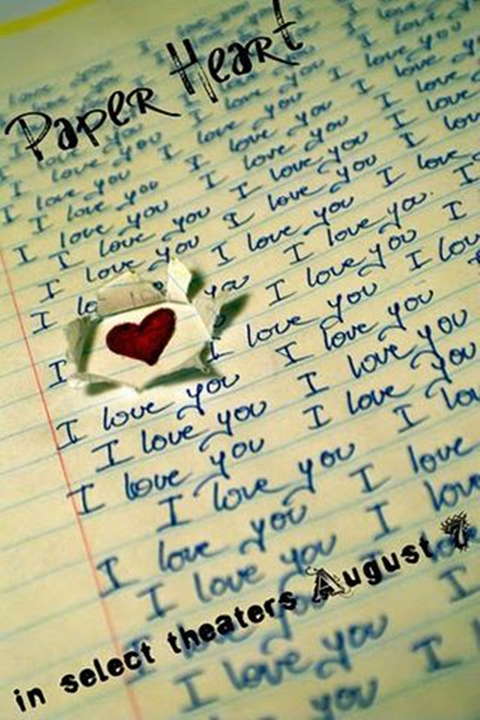 Paper Heart
I love you I love you I love you
I love you I love you I love you
I love you I love you I love you
I love you I love you I love
I love you I love you I love you
I love you I love you. I
I lo you I love you I
I I love you I love you I lov
I love you I love you
I love you I love you
I love you I love you
I love you I lo
I love you I love
I love you I love
in select theaters August 7
I love you I
you